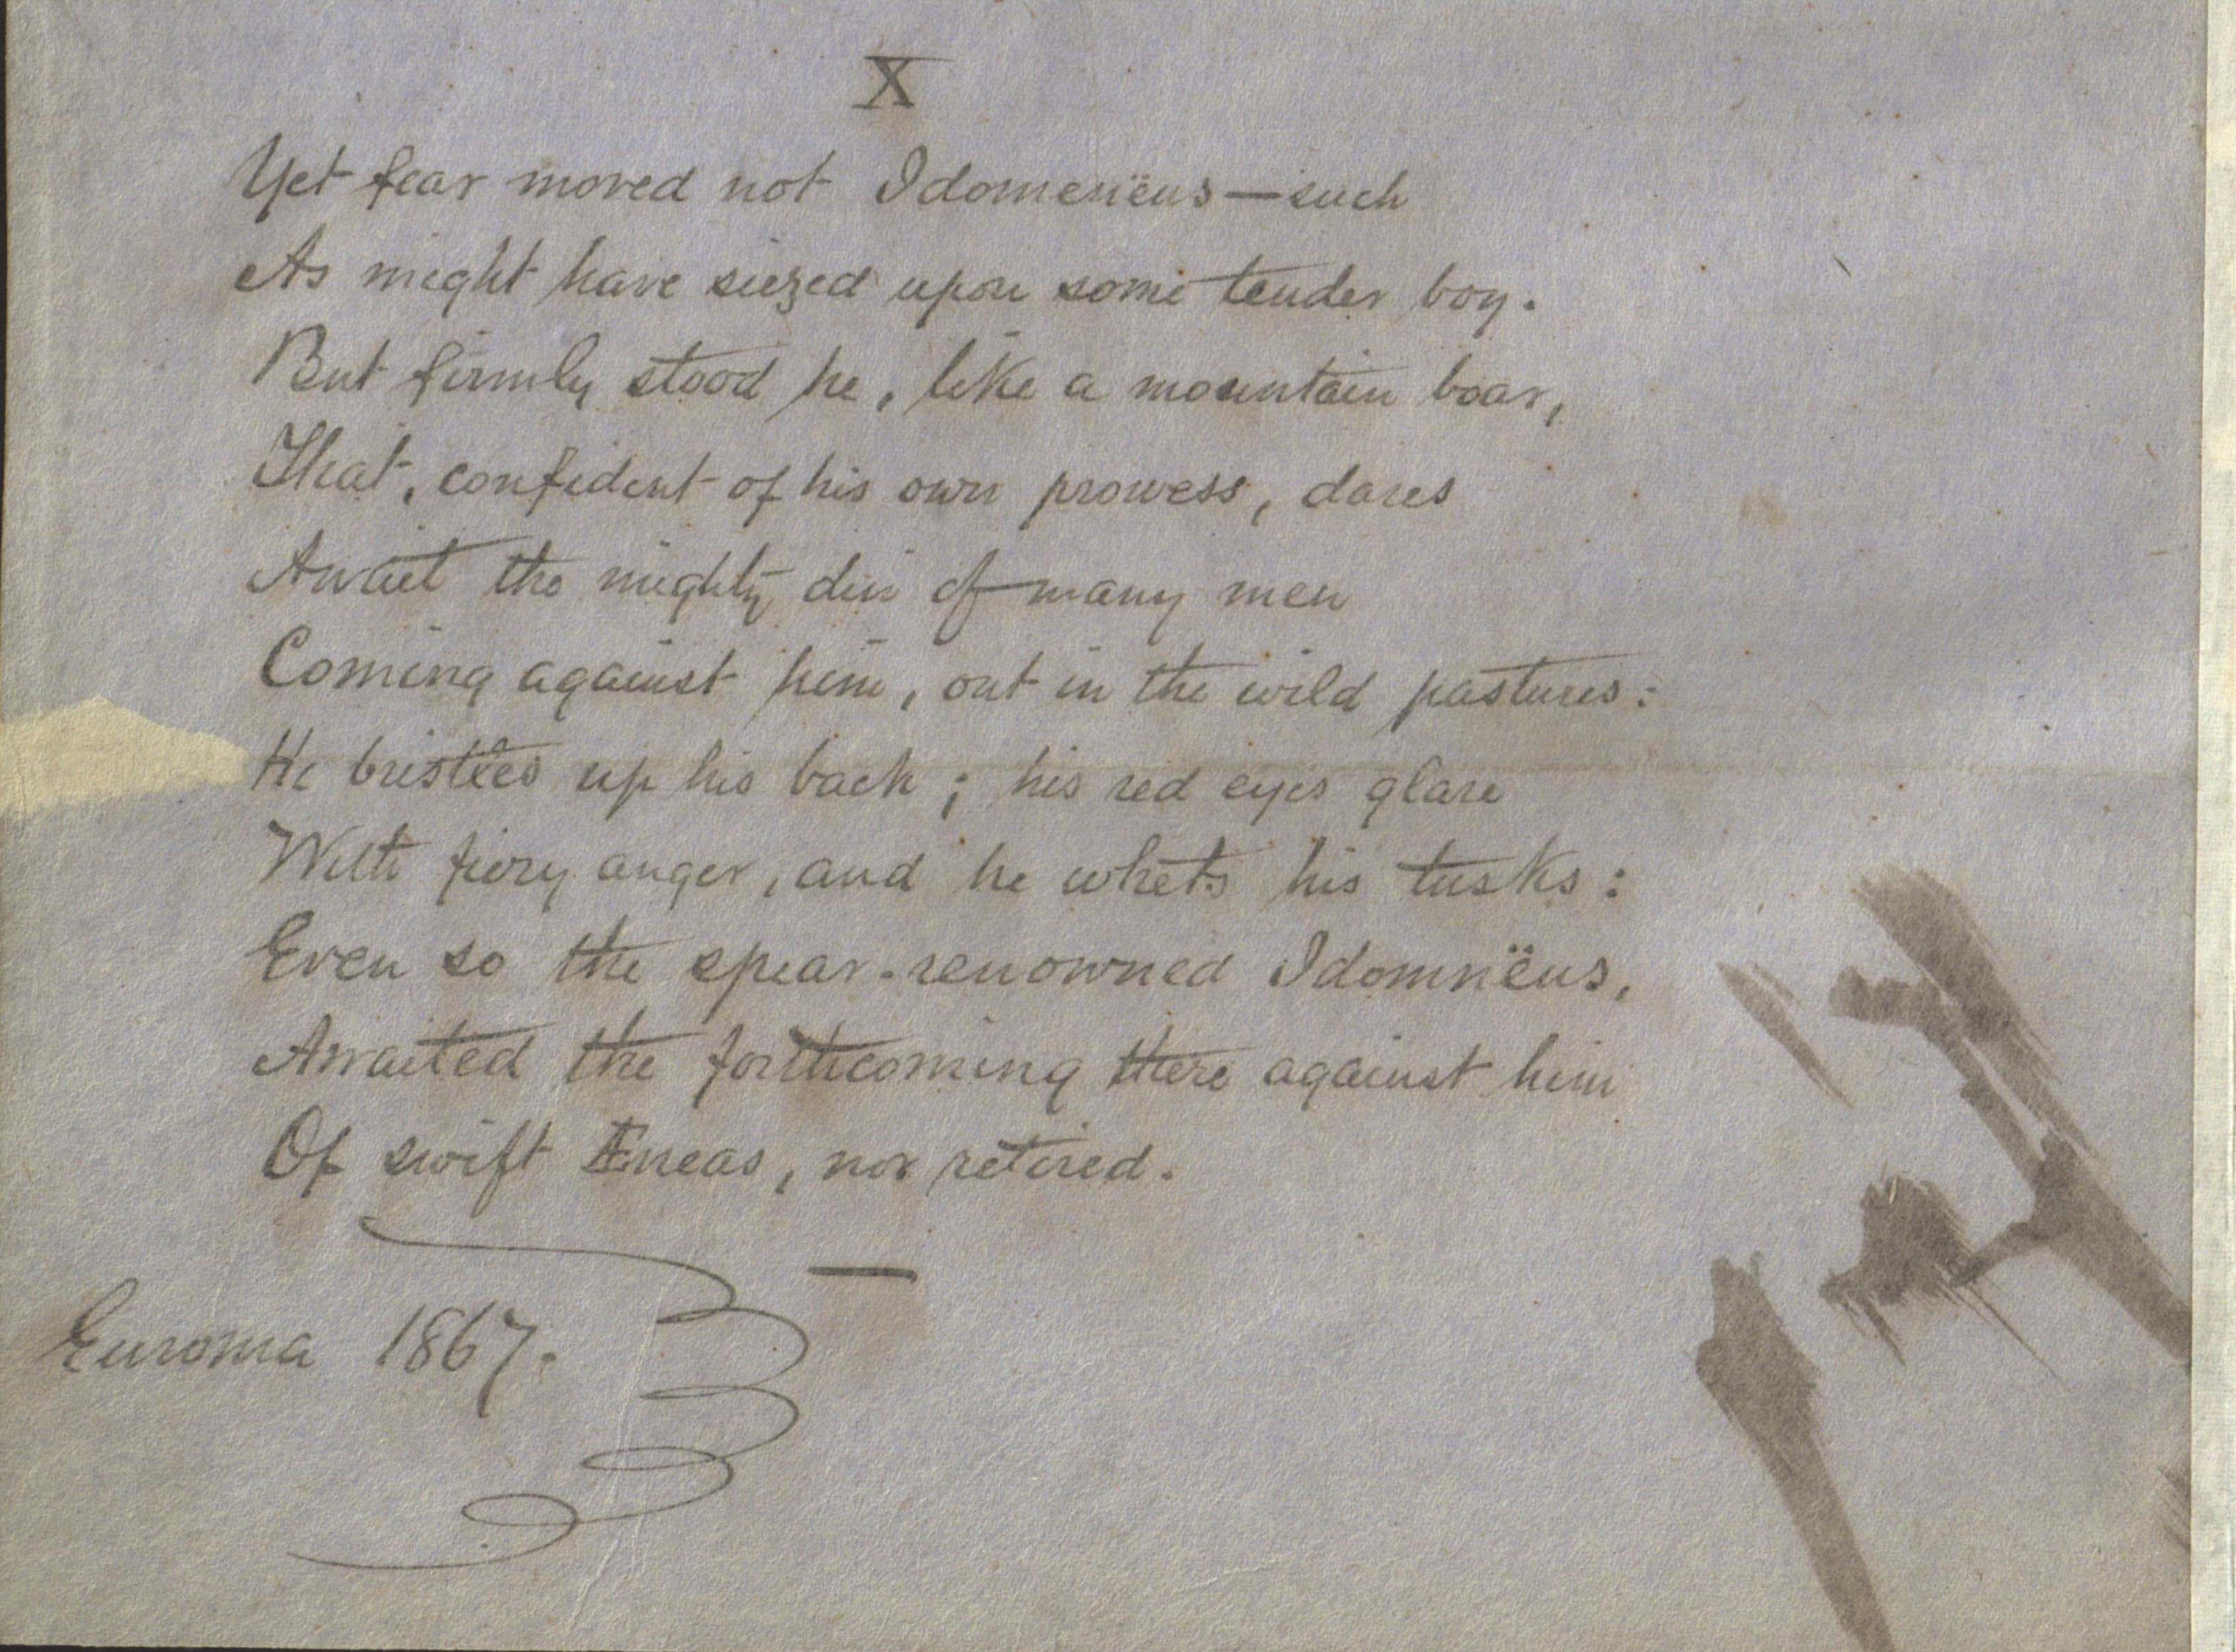 X
Yet fear moved not Idomenëus—such
As might have siezed upon some tender boy.
But firmly stood he, like a mountain boar,
That, confident of his own prowess, dares
Await the mighty din of many men
Coming against him, out in the wild pastures:
He bristles up his back; his red eyes glare
With fiery anger, and he whets his tusks:
Even so the spear-renowned Idomnëus,
Awaited the forthcoming there against him
Of swift Æneas, nor retired.
Euroma 1867.